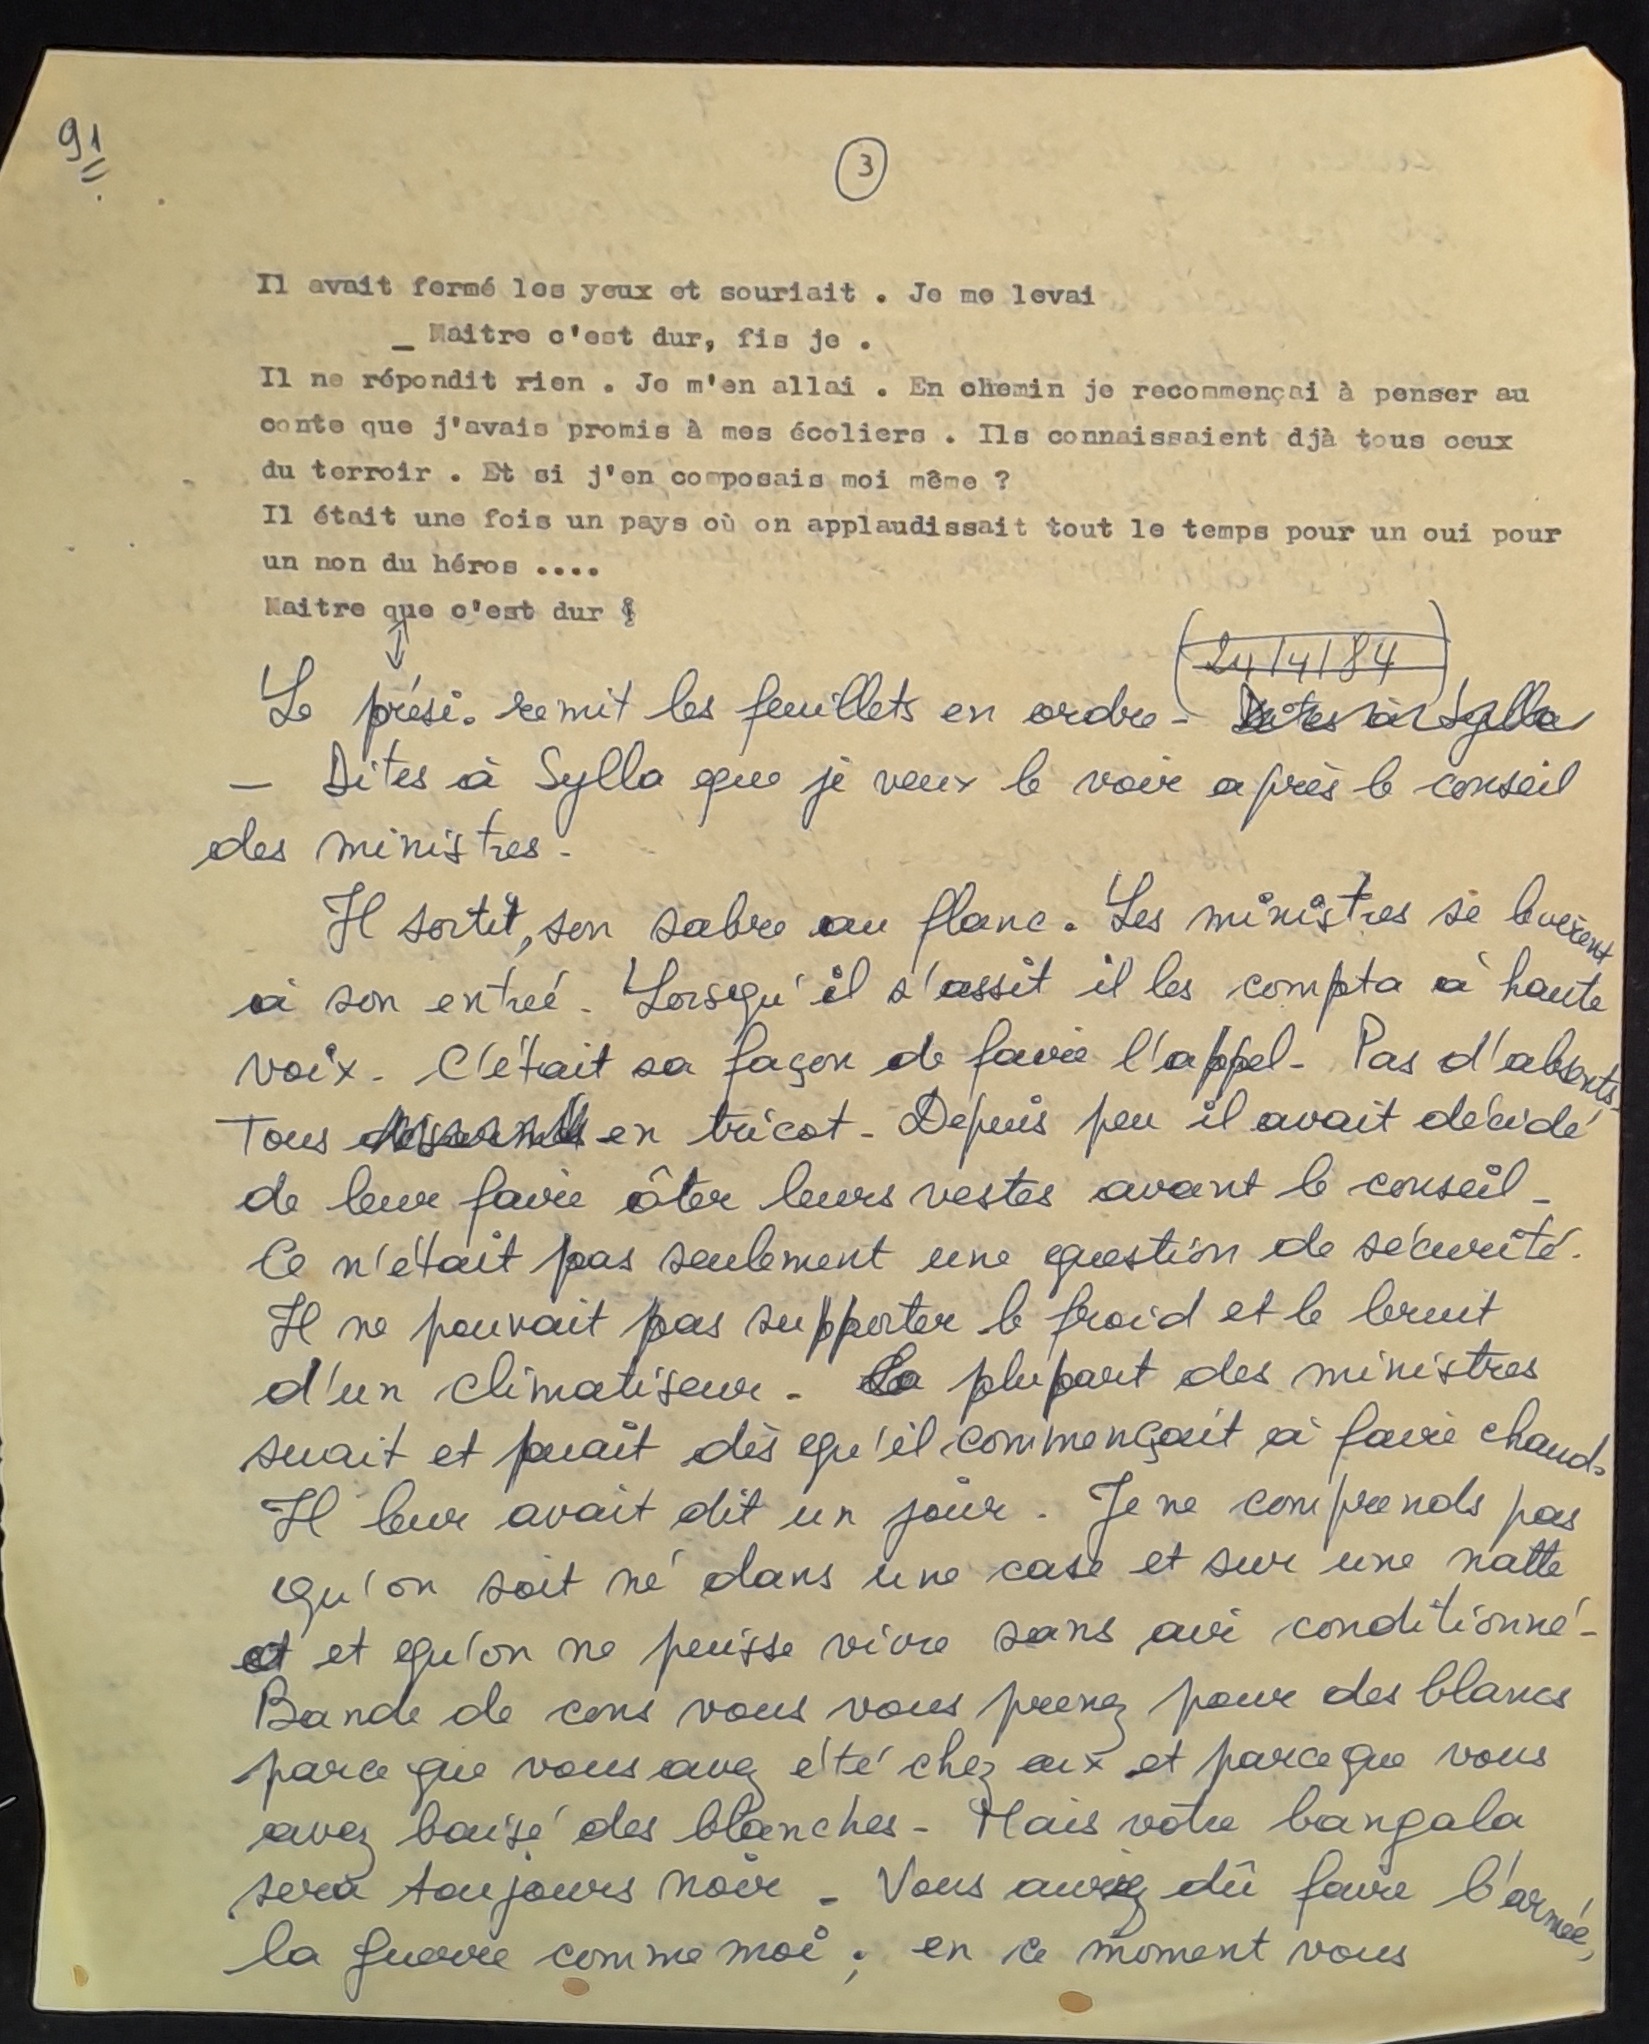 91
3
Il avait fermé les yeux et souriait . Je me levai
_ Maitre c'est dur, fis je .
Il ne répondit rien . Je m'en allai . En chemin je recommençai à penser au
conte que j'avais promis à mes écoliers . Ils connaissaient djà tous ceux
du terroir . Et si j'en composais moi même ?
Il était une fois un pays où on applaudissait tout le temps pour un oui pour
un non du héros ....
Maitre que c'est dur !
(24/4/84)
Le prési. remit les feuillets en ordre - Dites à Sylla
_ Dites à Sylla que je veux le voir après le conseil
des ministres.
Il sortit, son sabre au flanc. Les ministres se levèrent
à son entrée. Lorsqu'il s'assit il les compta à haute
voix. C'était sa façon de faire l'appel. Pas d'absents.
Tous en tricot. Depuis peu il avait décidé
de leur faire ôter leurs vestes avant le conseil.
Ce n'était pas seulement une question de sécurité.
Il ne pouvait pas supporter le froid et le bruit
d'un climatiseur. La plupart des ministres
suait et puait dès qu'il commençait à faire chaud.
Il leur avait dit un jour. Je ne comprends pas
qu'on soit né dans une case et sur une natte
et et qu'on ne puisse vivre sans air conditionné.
Bande de cons vous vous prenez pour des blancs
parce que vous avez été chez eux et parceque vous
avez baisé des blanches. Mais votre bangala
sera toujours noir. Vous auriez dû faire l'armée,
la guerre comme moi ; en ce moment vous